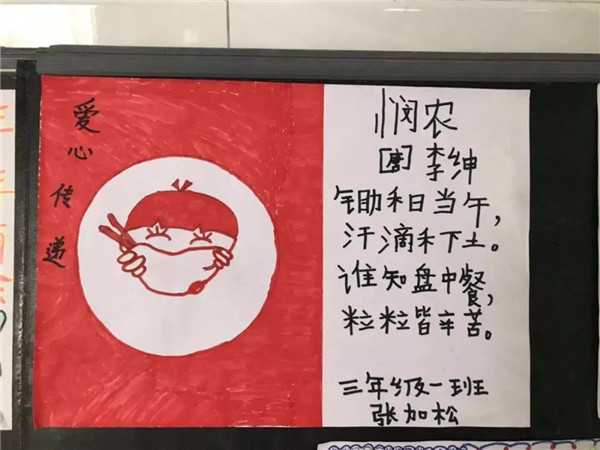 爱心传递
悯农
[唐] 李绅
锄禾日当午，
汗滴禾下土。
谁知盘中餐，
粒粒皆辛苦。
三年级一班
张加松